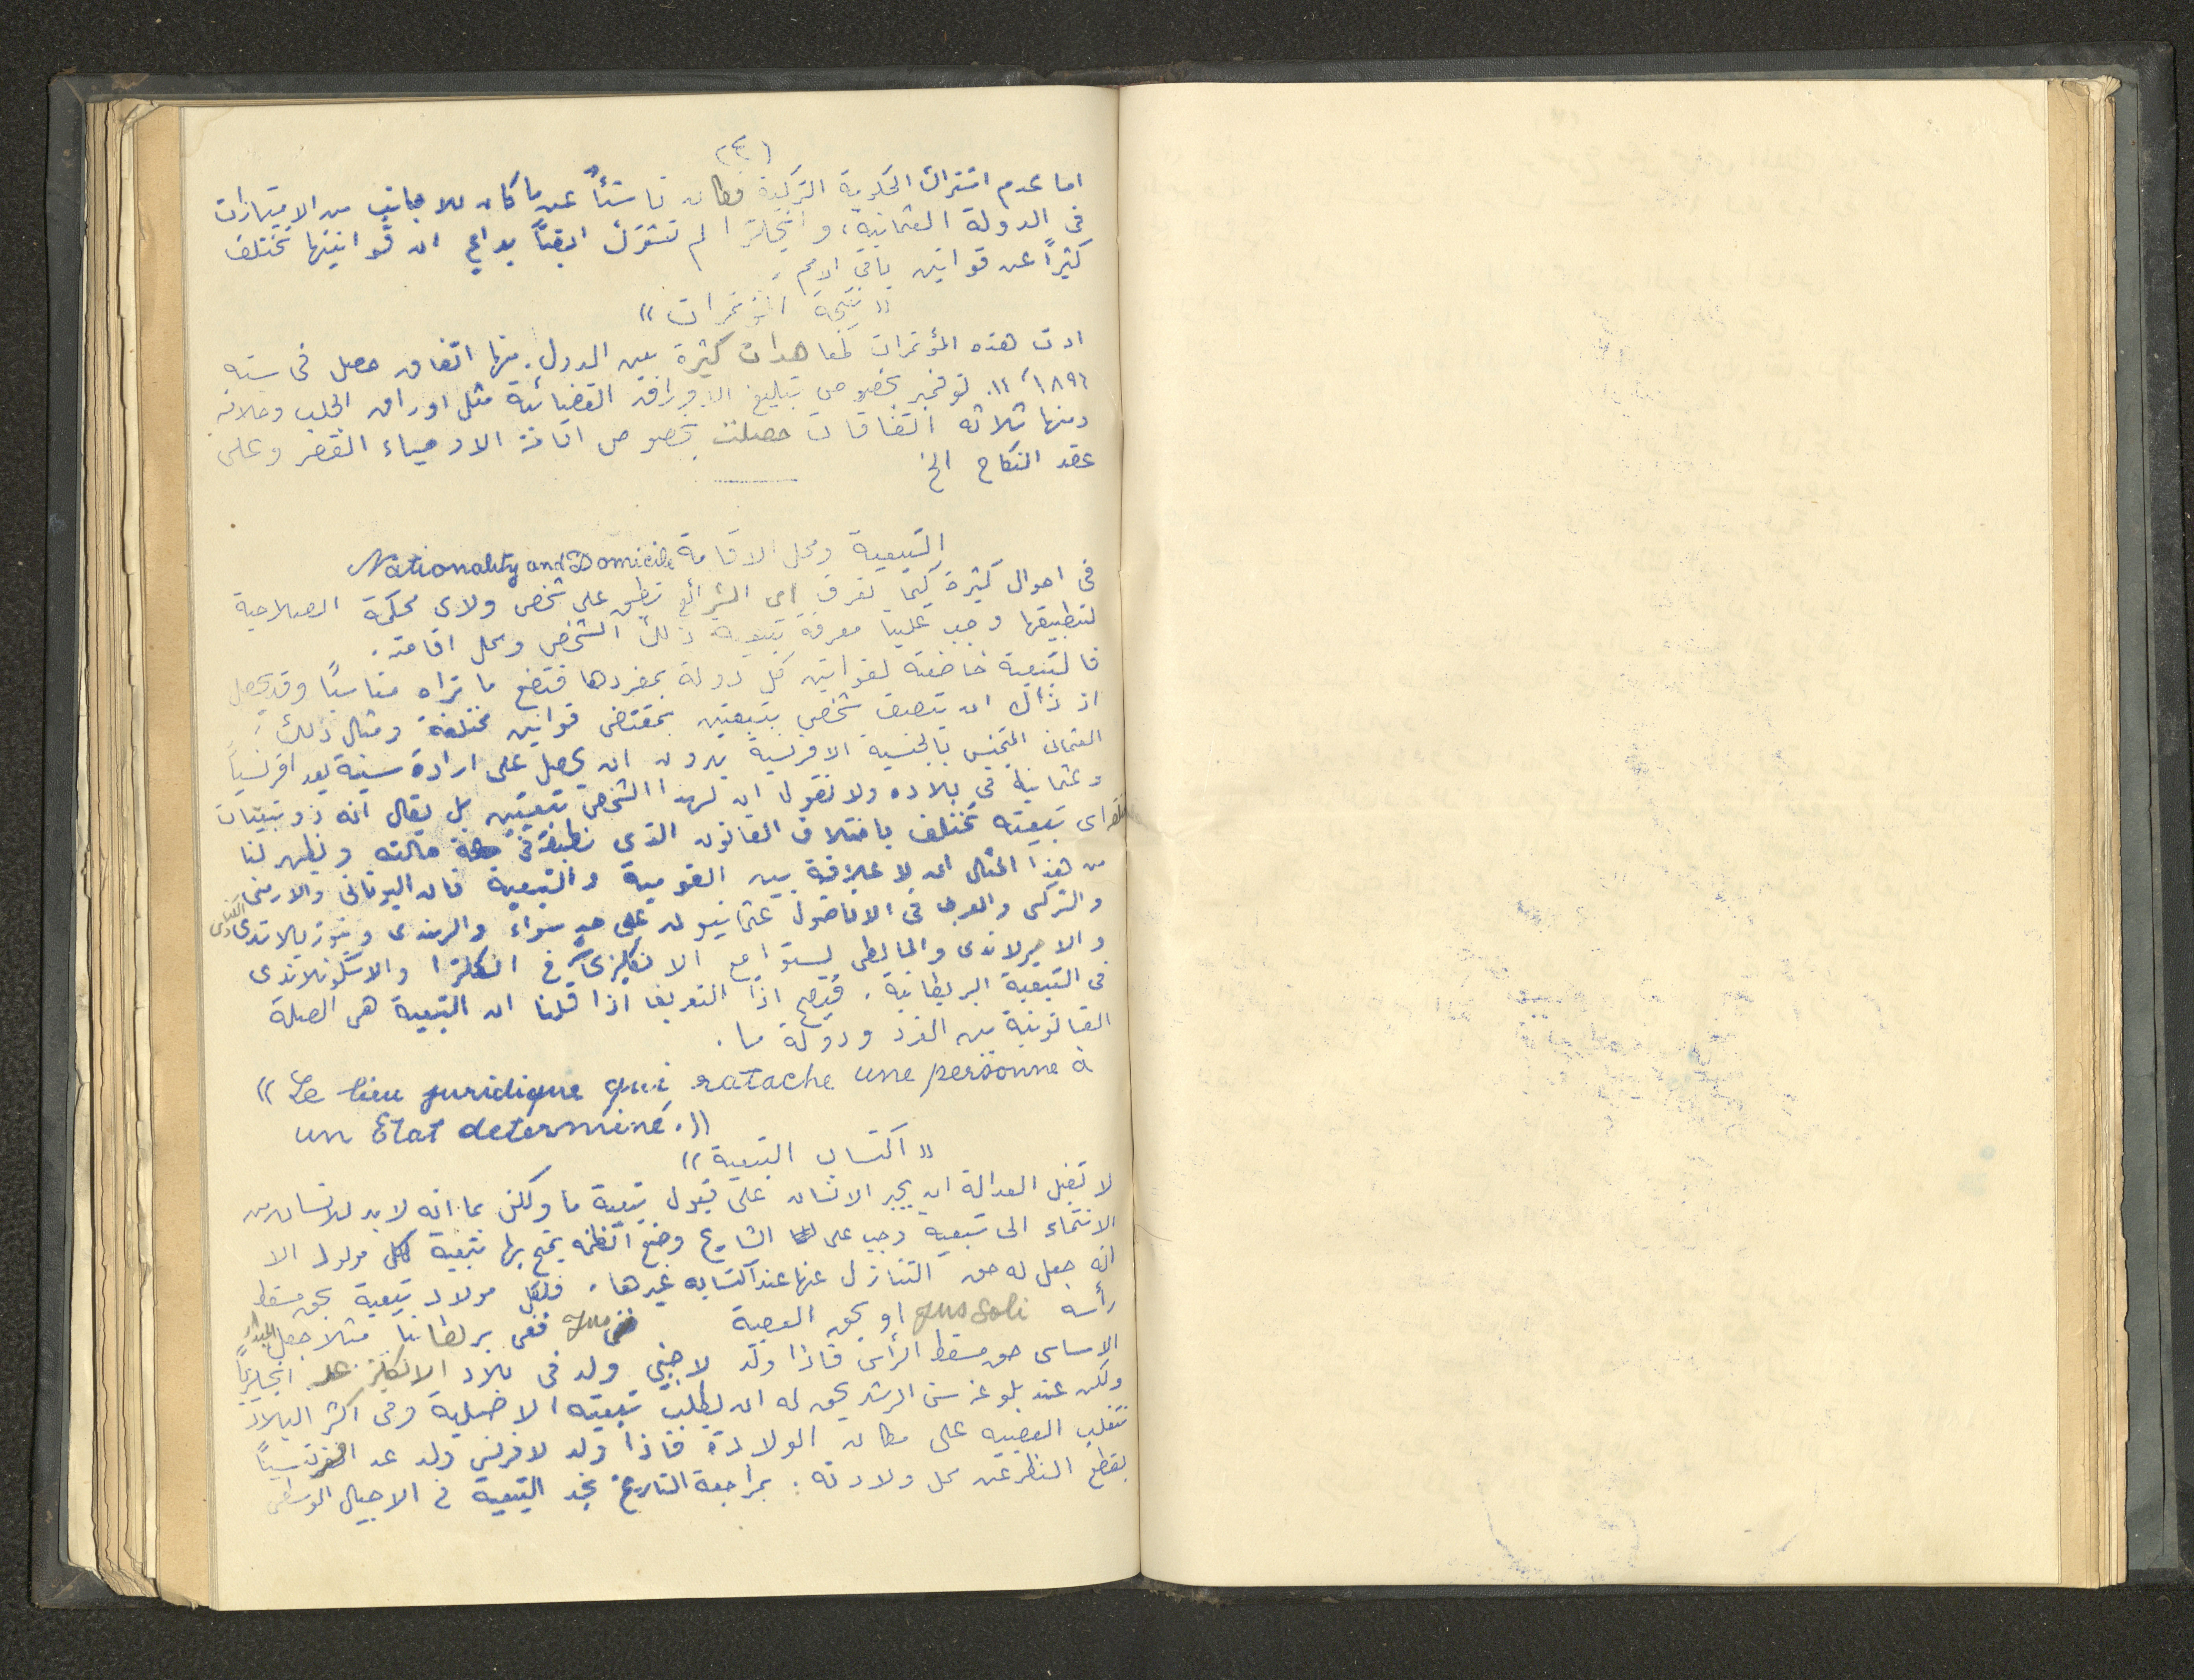 (٤)
اما عدم اشتراك الحكومة التركية فكان ناشئاً عن ما كان للاجانب من الامتيازات
في الدولة العثمانية، وانجلترا لم تشترك ايضاً بداعي ان قوانينها تختلف
كثيراً عن قوانين باقي الامم.
«نتيجة المؤتمرات»
ادت هذه المؤتمرات لمعاهدات كثيرة بين الدول. منها اتفاق حصل في سنه
١٨٩٦/ ١٤ نوفمبر بخصوص تبليغ الاوراق القضائية مثل اوراق الجلب وخلافه
ومنها ثلاثة اتفاقات حصلت بخصوص اقامة الاوصياء القصر وعلى
عقد النكاح الخ
التبعية ومحل الاقامة Nationality and Domicile
في احوال كثيرة كيما نعرف اي الشرائع نطبق على شخص ولاي محكمة الصلاحية
لتطبيقها وجب علينا معرفة تبعية ذلك الشخص ومحل اقامته.
فالتبعية خاضعة لقوانين كل دولة بمفردها فتضع ما تراه مناسباً وقد يحصل
اذ ذاك ان يتصف شخص بتبعيتين بمقتضى قوانين مختلفة ومثال ذلك:
العثماني المتجنس بالجنسية الافرنسية بدون ان يحصل على ارادة سنية يعد افرنسياً
وعثمانياً في بلاده ولا نقول ان لهذا الشخص تبعيتين بل يقال انه ذو تبعيتان
اي تبعيته تختلف باختلاف القانون الذي نطبقه في حالته ويظهر لنا
من هذا المثال ان لا علاقة بين القومية والتبعية فان اليوناني والارمني
والتركي والعرب في الاناضول عثمانيون على حد سواء والهندي ونيوزيلاندي والكنادي
والايرلاندي والمالطي يستوا مع الانكليزي في انكلترا والاسكوتلاندي
في التبعية البريطانية. فيصح اذاً التعريف اذا قلنا ان التبعية هي الصلة
القانونية بين الفرد ودولة ما.
« Le lien juridique qui ratache une personne à
un Etat determiné. »
«اكتساب التبعية»
لا تقبل العدالة ان يجبر الانسان على قبول تبعية ما ولكن بما انه لا بد للانسان من
الانتماء الى تبعية وجب على الشارع وضع انظمه يمنح بها تبعية لكل مولود الا
انه جعل له حق التنازل عنها عند اكتسابه غيرها. فلكل مولاد تبعية بحق مسقط
رأسه Jus Soli او بحق العصبة Jus ففي بريطانيا مثلا جعل المبدأ
الاساسي حق مسقط الرأس فاذا ولد لاجنبي ولد في بلاد الانكليز عد انجليزياً
ولكن عند بلوغه سن الرشد يحق له ان يطلب تبعيته الاصلية وفي اكثر البلاد
تتغلب العصبيه على مكان الولادة فاذا ولد لافرنسي ولد عد افرنسياً
بقطع النظر عن محل ولادته: بمراجعة التاريخ نجد التبعية في الاجيال الوسطى